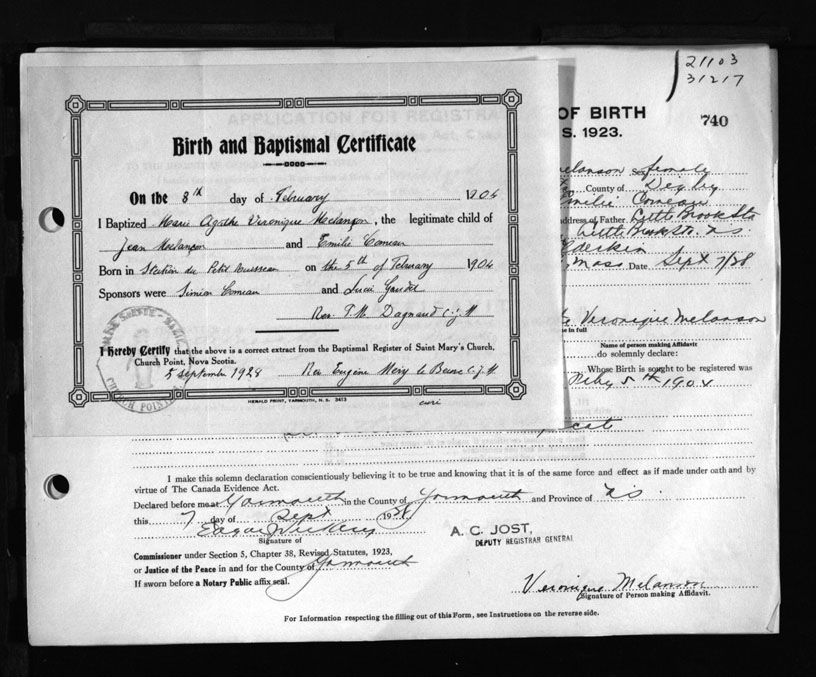 21103
31217
OF BIRTH
S. 1923.
740
Birth and Baptismal Certificate
On the 8th day of February 1904
I Baptized Marie Agathe Veronique Melançon, the legitimate child of
Jean Melançon and Emilie Comeau
Born in Station du Petit Ruisseau on the 5th of February 1904
Sponsors were Simion Comeau and Lucie Gaudet
Rev. P.M. Dagnaud c.j.m
I Hereby Certify that the above is a correct extract from the Baptismal Register of Saint Mary's Church,
Church Point, Nova Scotia.
5 September 1928 Rev Eugène Mery Le Beuve c.j.m.
HERALD PRINT, YARMOUTH, N. S. 3413
curé
CHURCH POINT
Melanson Female
County of Digby
Emilie Comeau
address of Father Little Brook Sta
Little Brook Sta. N.S.
Mass Date Sept 7/28
Veronique Melanson
in full
Name of person making Affidavit
do solemnly declare:
Whose Birth is sought to be registered was
Feby 5th 1904
I make this solemn declaration conscientiously believing it to be true and knowing that it is of the same force and effect as if made under oath and by
virtue of The Canada Evidence Act.
Declared before me at Yarmouth in the County of Yarmouth and Province of N.S.
this 7 day of Sept 1928
Signature of
A. C. JOST,
DEPUTY REGISTRAR GENERAL
Commissioner under Section 5, Chapter 38, Revised Statutes, 1923,
or Justice of the Peace in and for the County of Yarmouth
If sworn before a Notary Public affix seal.
Veronique Melanson
Signature of Person making Affidavit.
For Information respecting the filling out of this Form, see Instructions on the reverse side.